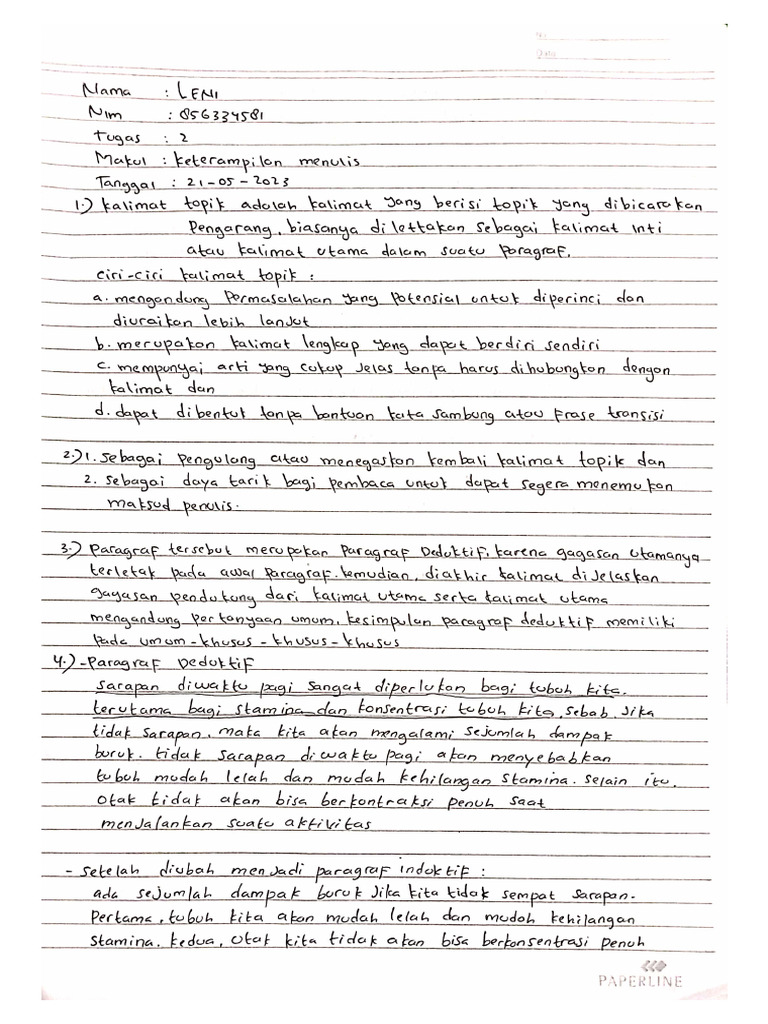 No
Date
Nama : LENI
Nim : 856334581
Tugas : 2
Makul : keterampilan menulis
Tanggal : 21-05-2023
1.) kalimat topik adalah kalimat yang berisi topik yang dibicarakan
Pengarang, biasanya dilettakan sebagai kalimat inti
atau kalimat utama dalam suatu paragraf.
ciri-ciri kalimat topik :
a. mengandung permasalahan yang potensial untuk diperinci dan
diuraikan lebih lanjut
b. merupakan kalimat lengkap yang dapat berdiri sendiri
c. mempunyai arti yang cukup jelas tanpa harus dihubungkan dengan
kalimat dan
d. dapat dibentuk tanpa bantuan kata sambung atau frase transisi
2.) 1. sebagai pengulang atau menegaskan kembali kalimat topik dan
2. sebagai daya tarik bagi pembaca untuk dapat segera menemukan
maksud penulis.
3.) paragraf tersebut merupakan paragraf Deduktif, karena gagasan utamanya
terletak pada awal paragraf. kemudian, diakhir kalimat dijelaskan
gagasan pendukung dari kalimat utama serta kalimat utama
mengandung pertanyaan umum, kesimpulan paragraf deduktif memiliki
pada umum - khusus - khusus - khusus
4.) - Paragraf Deduktif
sarapan diwaktu pagi sangat diperlukan bagi tubuh kita.
terutama bagi stamina dan konsentrasi tubuh kita, sebab jika
tidak sarapan, maka kita akan mengalami sejumlah dampak
buruk. tidak sarapan diwaktu pagi akan menyebabkan
tubuh mudah lelah dan mudah kehilangan stamina. selain itu,
otak tidak akan bisa berkontraksi penuh saat
menjalankan suatu aktivitas
- setelah diubah menjadi paragraf induktif :
ada sejumlah dampak buruk jika kita tidak sempat sarapan.
Pertama, tubuh kita akan mudah lelah dan mudah kehilangan
stamina. kedua, otak kita tidak akan bisa berkonsentrasi penuh
PAPERLINE